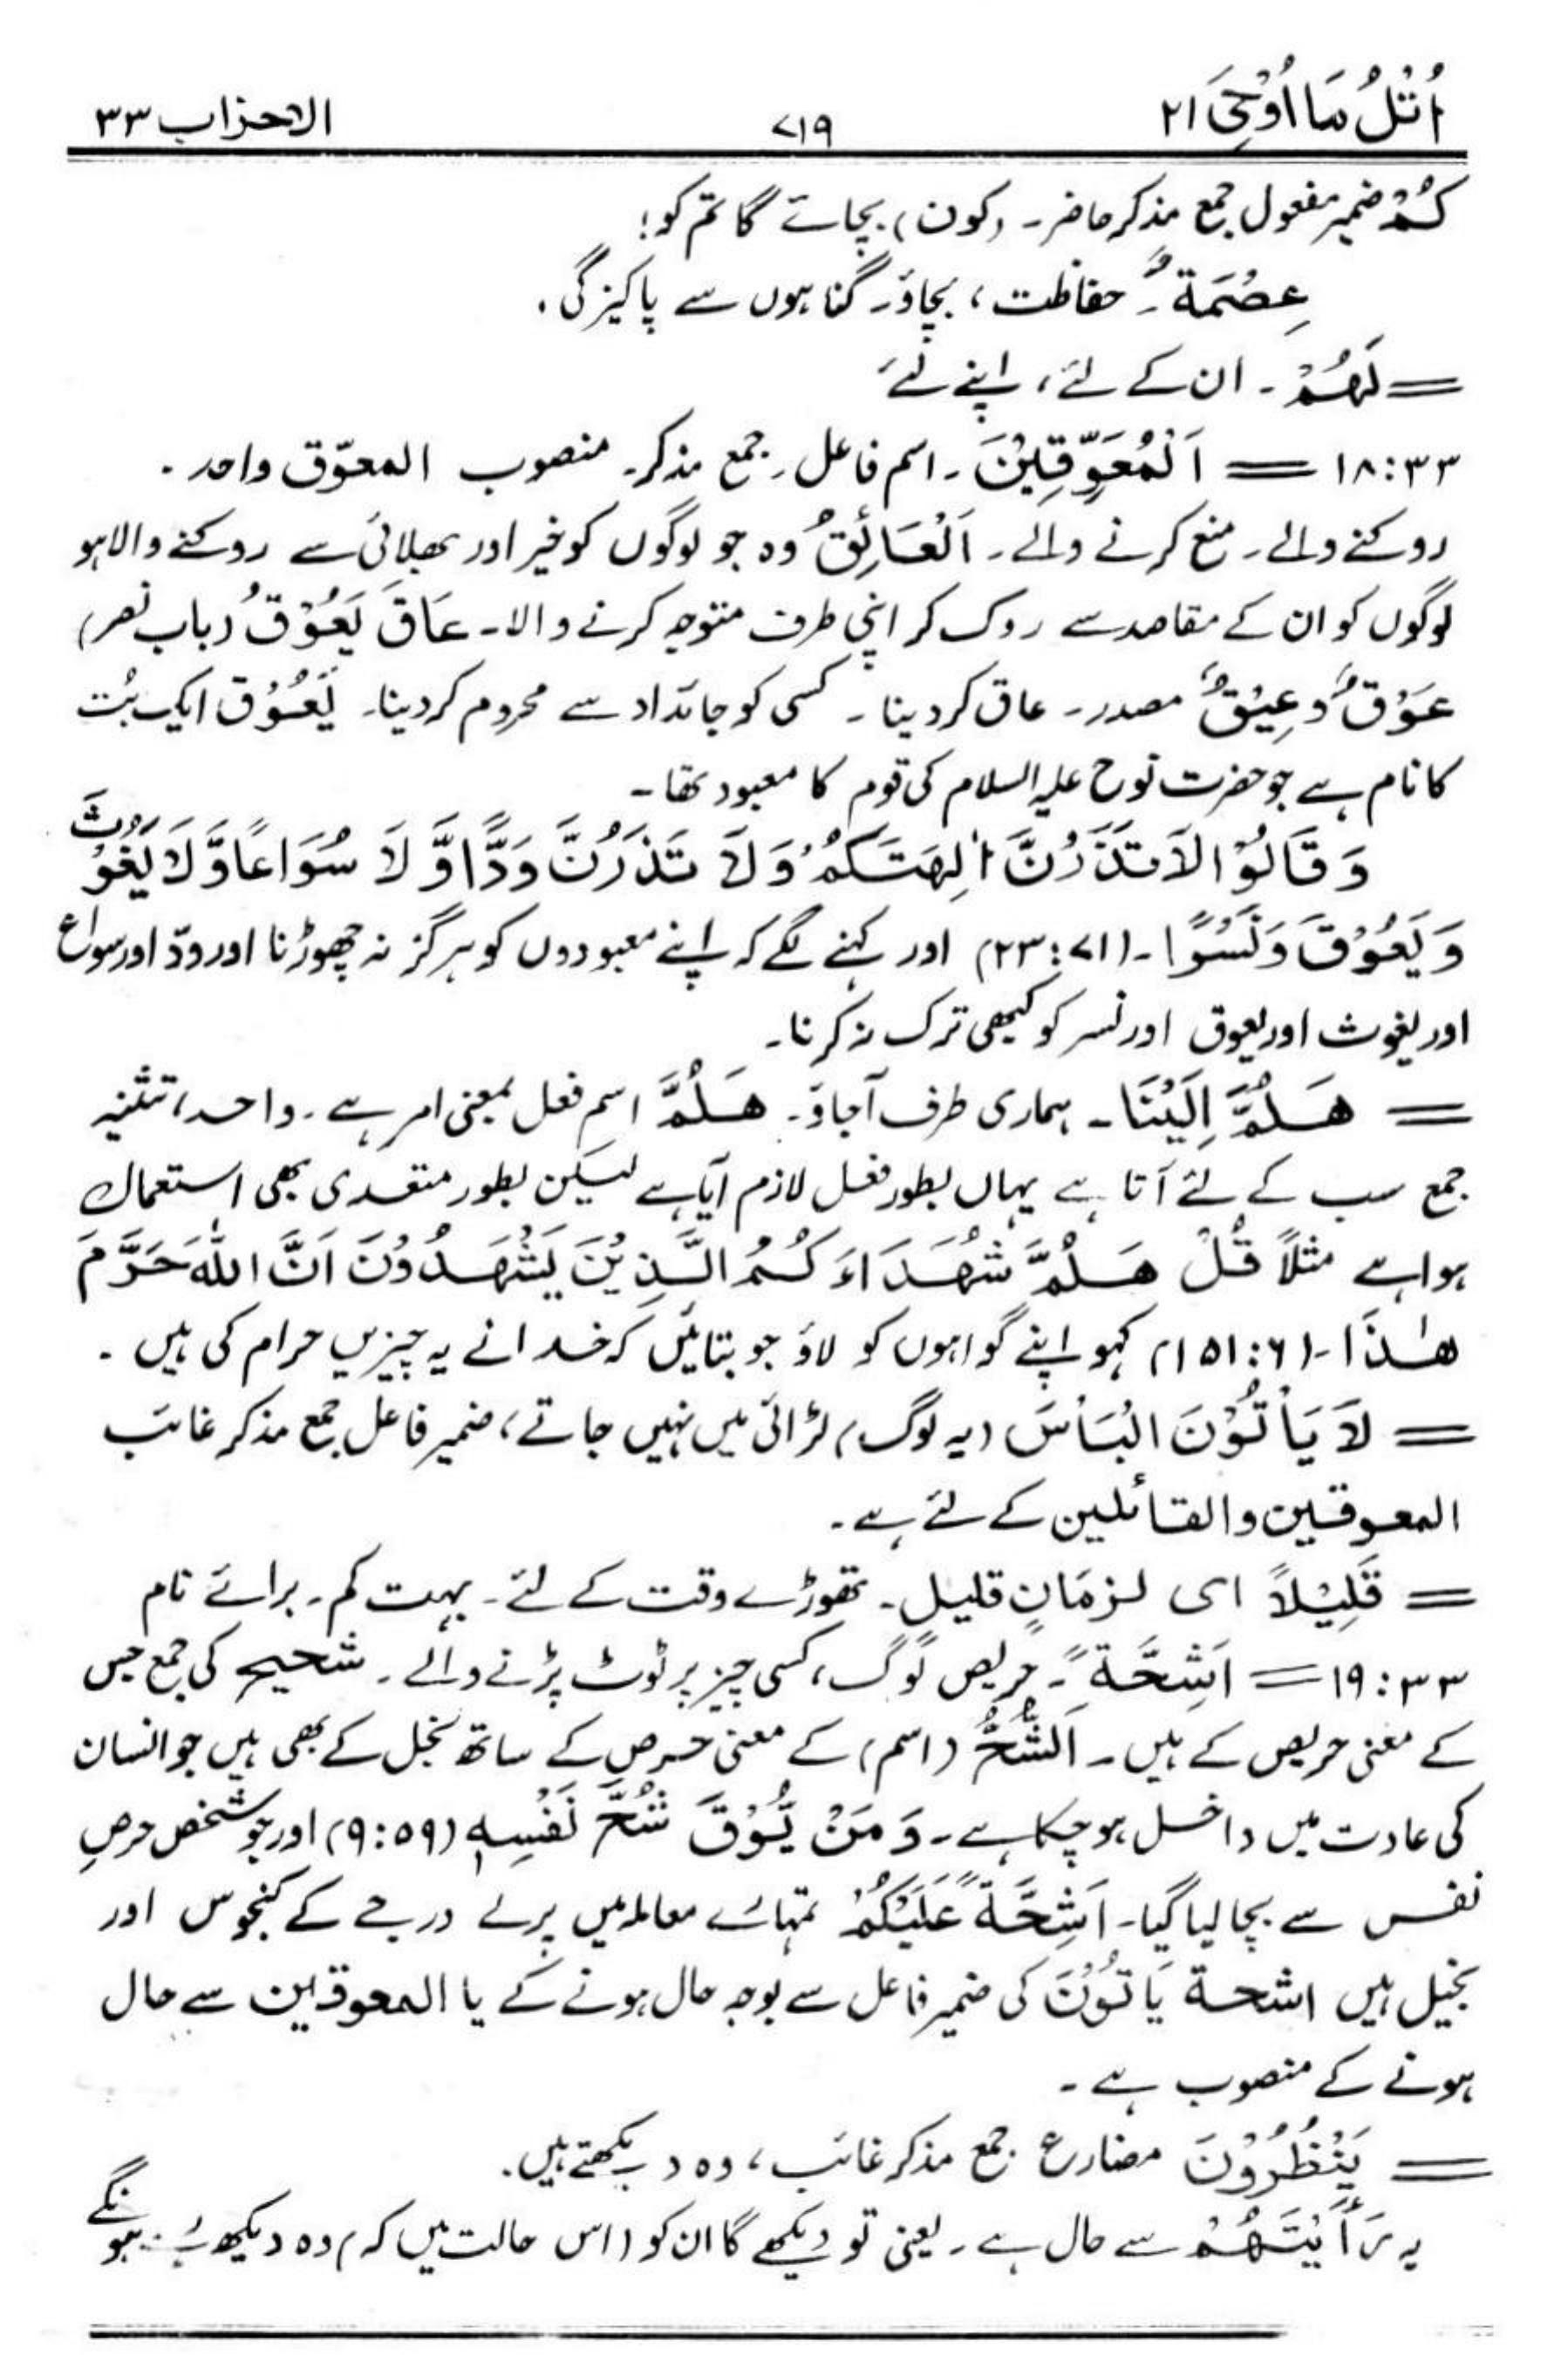 اُتْلُ مَا اُوْحِیَ ۲۱ ۷۱۹ الاحزاب ۳۳
کُمْ ضمیر مفعول جمع مذکر حاضر۔ (کون) بچائے گا تم کو؛
عِصْمَۃٌ۔ حفاظت، بچاؤ۔ گناہوں سے پاکیزگی۔
= لَهُمْ۔ ان کے لئے، اپنے لئے
۱۸:۳۳ = اَلْمُعَوِّقِیْنَ۔ اسم فاعل۔ جمع مذکر۔ منصوب المعوّق واحد۔
روکنے والے۔ منع کرنے والے۔ اَلْعَائِقُ وہ جو لوگوں کو خیر اور بھلائی سے روکنے والا ہو
لوگوں کو ان کے مقاصد سے روک کر اپنی طرف متوجہ کرنے والا۔ عَاقَ یَعُوْقُ (باب نصر)
عَوْقٌ و عِیْقٌ مصدر۔ عاق کر دینا۔ کسی کو جائداد سے محروم کر دینا۔ یَعُوْق ایک بُت
کا نام ہے جو حضرت نوح علیہ السلام کی قوم کا معبود تھا۔
وَ قَالُوْا لَا تَذَرُنَّ اٰلِهَتَكُمْ وَلَا تَذَرُنَّ وَدًّا وَّ لَا سُوَاعًا وَّ لَا یَغُوْثَ
وَ یَعُوْقَ وَ نَسْرًا۔ (۲۳:۷۱) اور کہنے لگے کہ اپنے معبودوں کو ہرگز نہ چھوڑنا اور ودّ اور سواع
اور یغوث اور یعوق اور نسر کو کبھی ترک نہ کرنا۔
= هَلُمَّ اِلَیْنَا۔ ہماری طرف آجاؤ۔ هَلُمَّ اسم فعل بمعنی امر ہے۔ واحد، تثنیہ
جمع سب کے لئے آتا ہے یہاں بطور فعل لازم آیا ہے لیکن بطور متعدی بھی استعمال
ہوا ہے مثلاً قُلْ هَلُمَّ شُهَدَاءَ كُمُ الَّذِیْنَ یَشْهَدُوْنَ اَنَّ اللهَ حَرَّمَ
هٰذَا۔ (۱۵۱:۶) کہو اپنے گواہوں کو لاؤ جو بتائیں کہ خدا نے یہ چیزیں حرام کی ہیں۔
= لَا یَأْتُوْنَ الْبَأْسَ (یہ لوگ) لڑائی میں نہیں جاتے، ضمیر فاعل جمع مذکر غائب
المعوقین والقائلین کے لئے ہے۔
= قَلِیْلًا ای لزمَانٍ قلیلٍ۔ تھوڑے وقت کے لئے۔ بہت کم۔ برائے نام
۱۹:۳۳ = اَشِحَّةً۔ حریص لوگ، کسی چیز پر ٹوٹ پڑنے والے۔ شحیح کی جمع جس
کے معنی حریص کے ہیں۔ اَلشُّحُّ (اسم) کے معنی حرص کے ساتھ بخل کے بھی ہیں جو انسان
کی عادت میں داخل ہو چکا ہے۔ وَ مَنْ یُّوْقَ شُحَّ نَفْسِهٖ (۹:۵۹) اور جو شخص حرصِ
نفس سے بچا لیا گیا۔ اَشِحَّةً عَلَیْكُمْ تمہارے معاملہ میں پرلے درجے کے کنجوس اور
بخیل ہیں اشحۃ یَاتُوْنَ کی ضمیر فاعل سے بوجہ حال ہونے کے یا المعوقین سے حال
ہونے کے منصوب ہے۔
= یَنْظُرُوْنَ مضارع جمع مذکر غائب، وہ دیکھتے ہیں۔
یہ رَأَیْتَهُمْ سے حال ہے۔ یعنی تو دیکھے گا ان کو (اس حالت میں کہ) وہ دیکھ رہے ہونگے